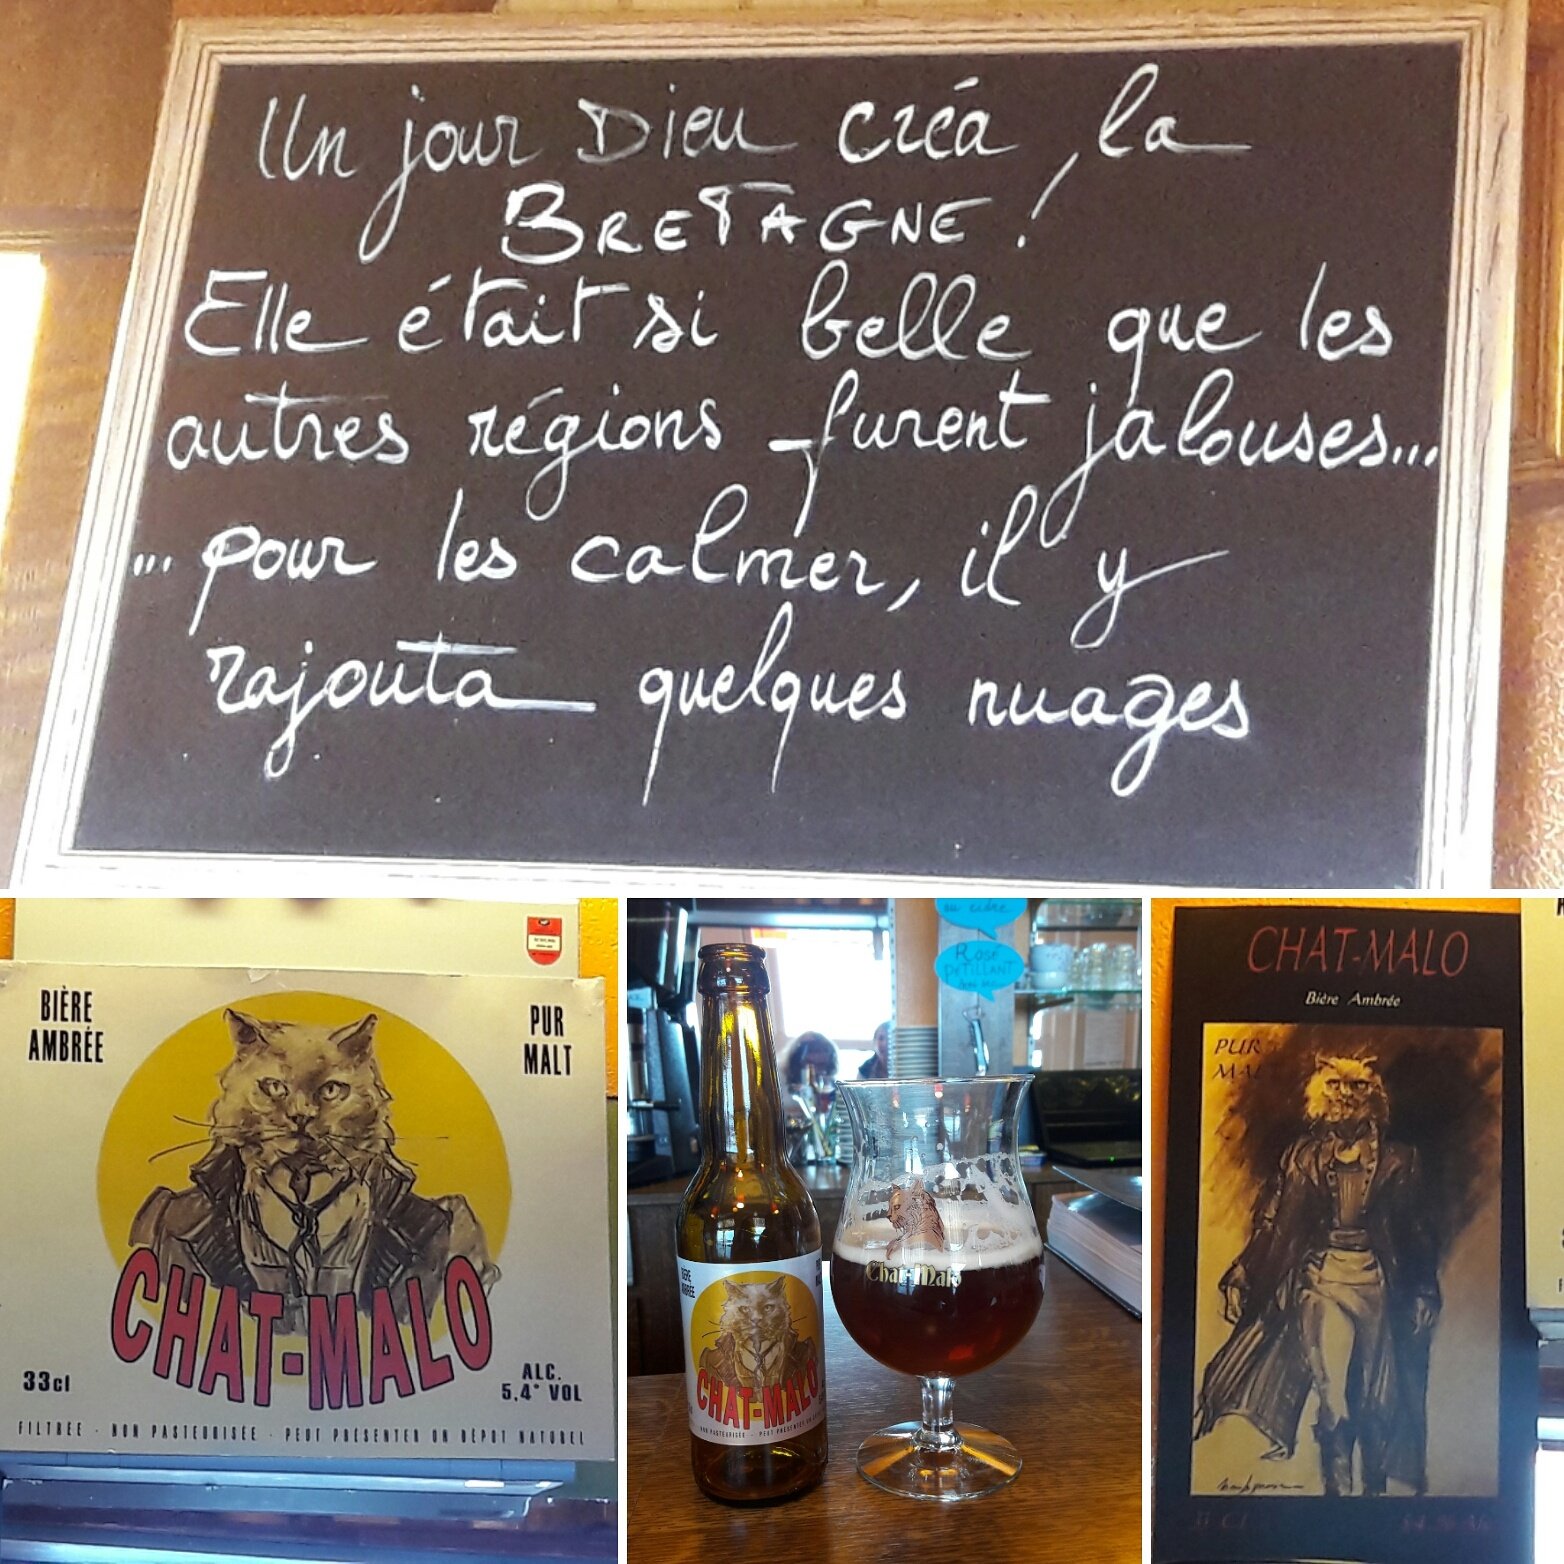 Un jour Dieu créa, la
BRETAGNE !
Elle était si belle que les
autres régions furent jalouses...
... pour les calmer, il y
rajouta quelques nuages
BIÈRE
AMBRÉE
PUR
MALT
CHAT-MALO
33cl
ALC.
5,4° VOL
FILTREE - NON PASTEURISÉE - PEUT PRÉSENTER UN DÉPOT NATUREL
au cidre
Rosé
PETILLANT
BIÈRE
AMBRÉE
CHAT-MALO
NON PASTEURISÉE - PEUT PRÉSENTER UN
Chat Malo
CHAT-MALO
Bière Ambrée
PUR